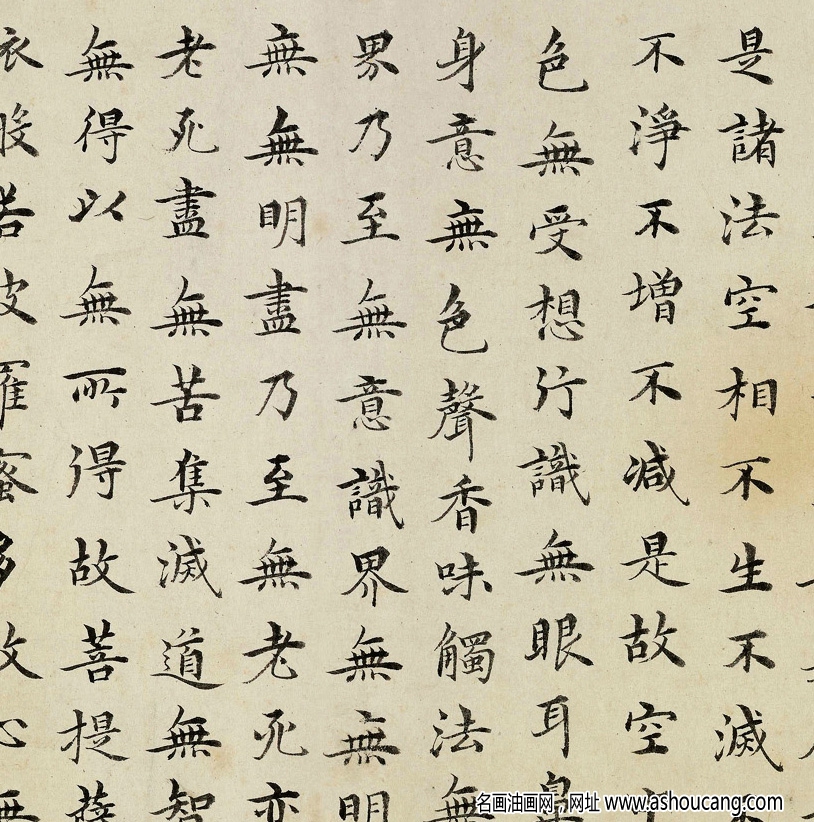 是諸法空相不生不滅
不淨不增不减是故空
色無受想行識無眼耳鼻
身意無色聲香味觸法無
界乃至無意識界無無明
無無明盡乃至無老死亦
老死盡無苦集滅道無智
無得以無所得故菩提薩
名画油画网，网址 www.ashoucang.com